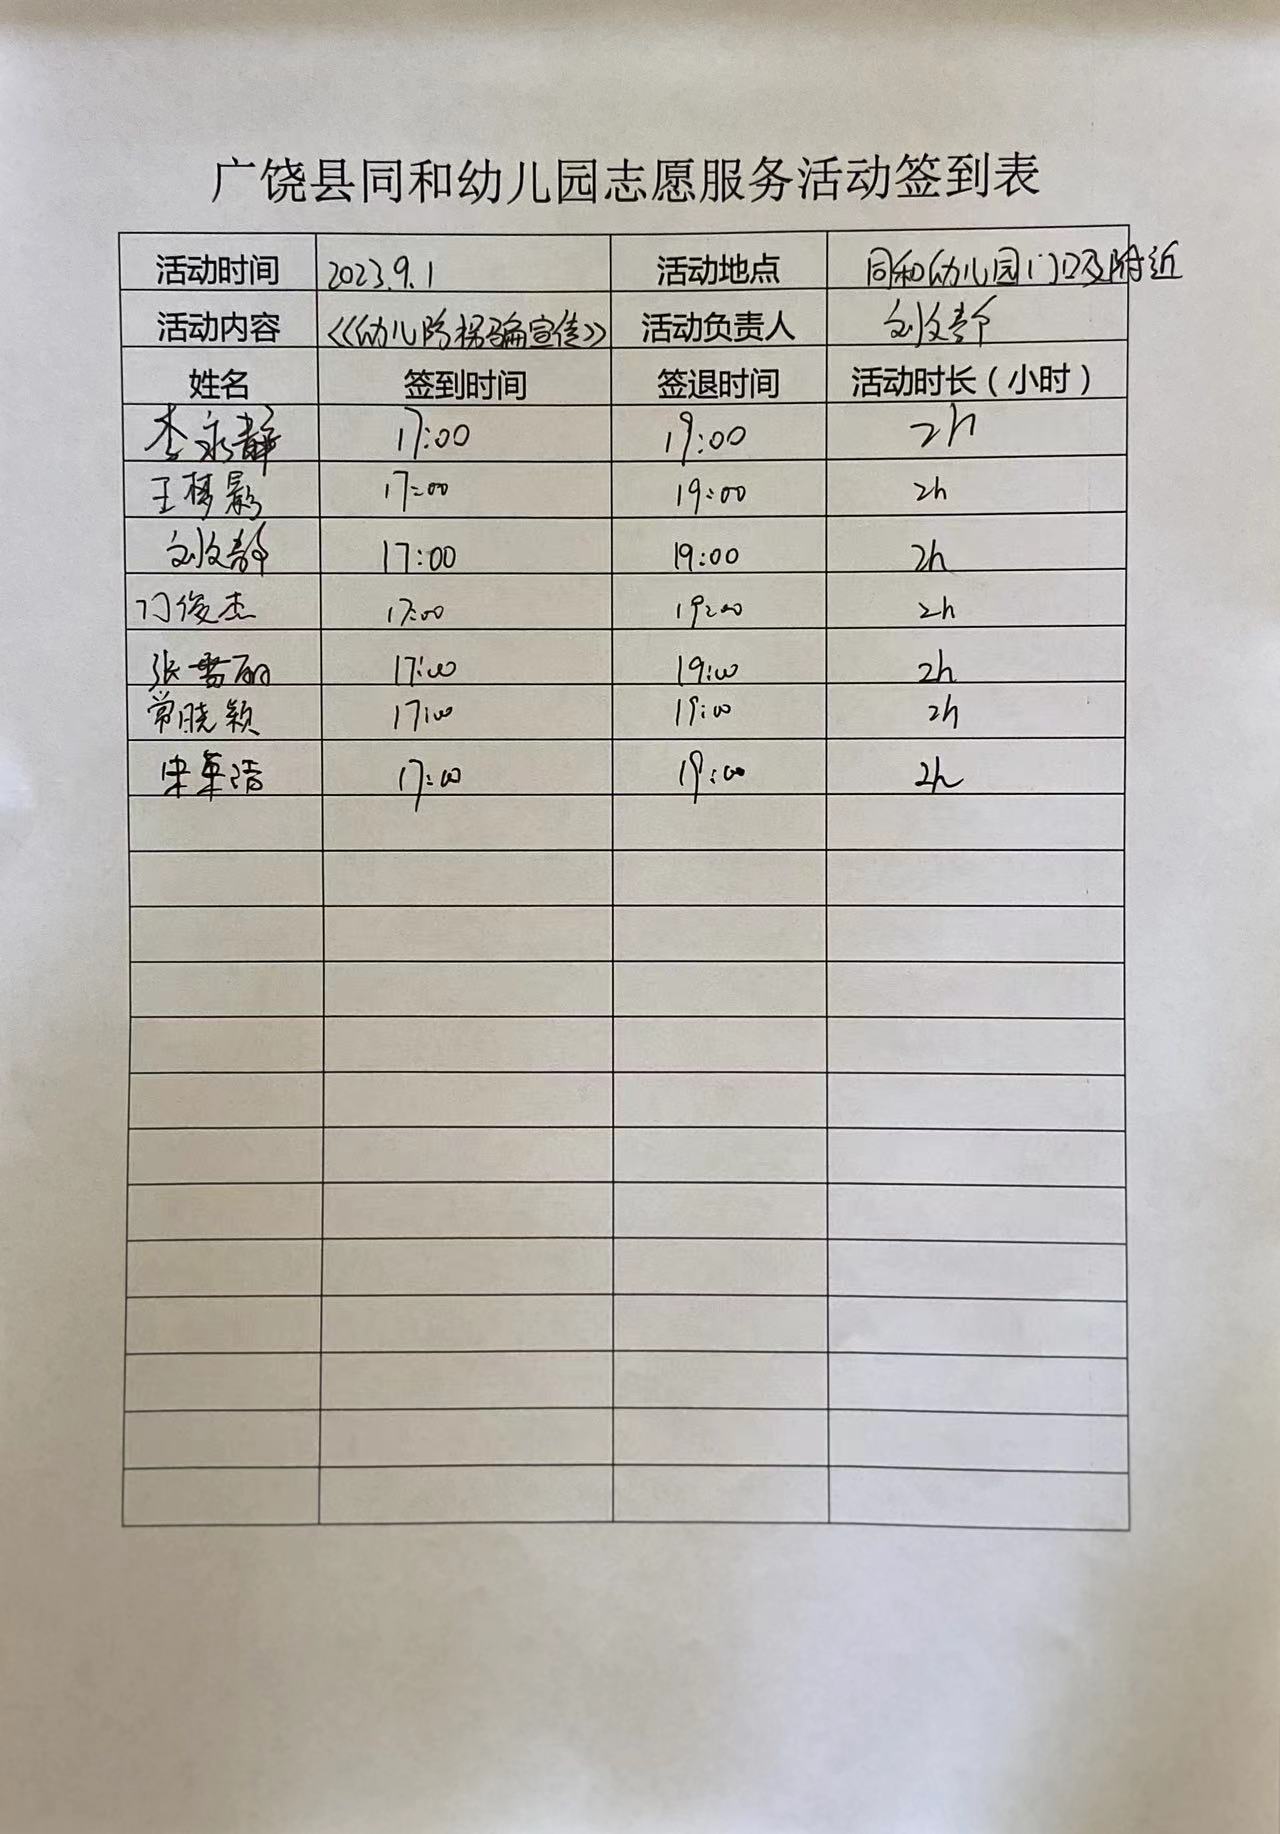 广饶县同和幼儿园志愿服务活动签到表
活动时间 2023.9.1 活动地点 同和幼儿园门口及附近
活动内容 《幼儿防拐骗宣传》 活动负责人 刘文静
姓名 签到时间 签退时间 活动时长（小时）
李永静 17:00 19:00 2h
王梦影 17:00 19:00 2h
刘文静 17:00 19:00 2h
门俊杰 17:00 19:00 2h
张雪丽 17:00 19:00 2h
常晓颖 17:00 19:00 2h
17:00 19:00 2h